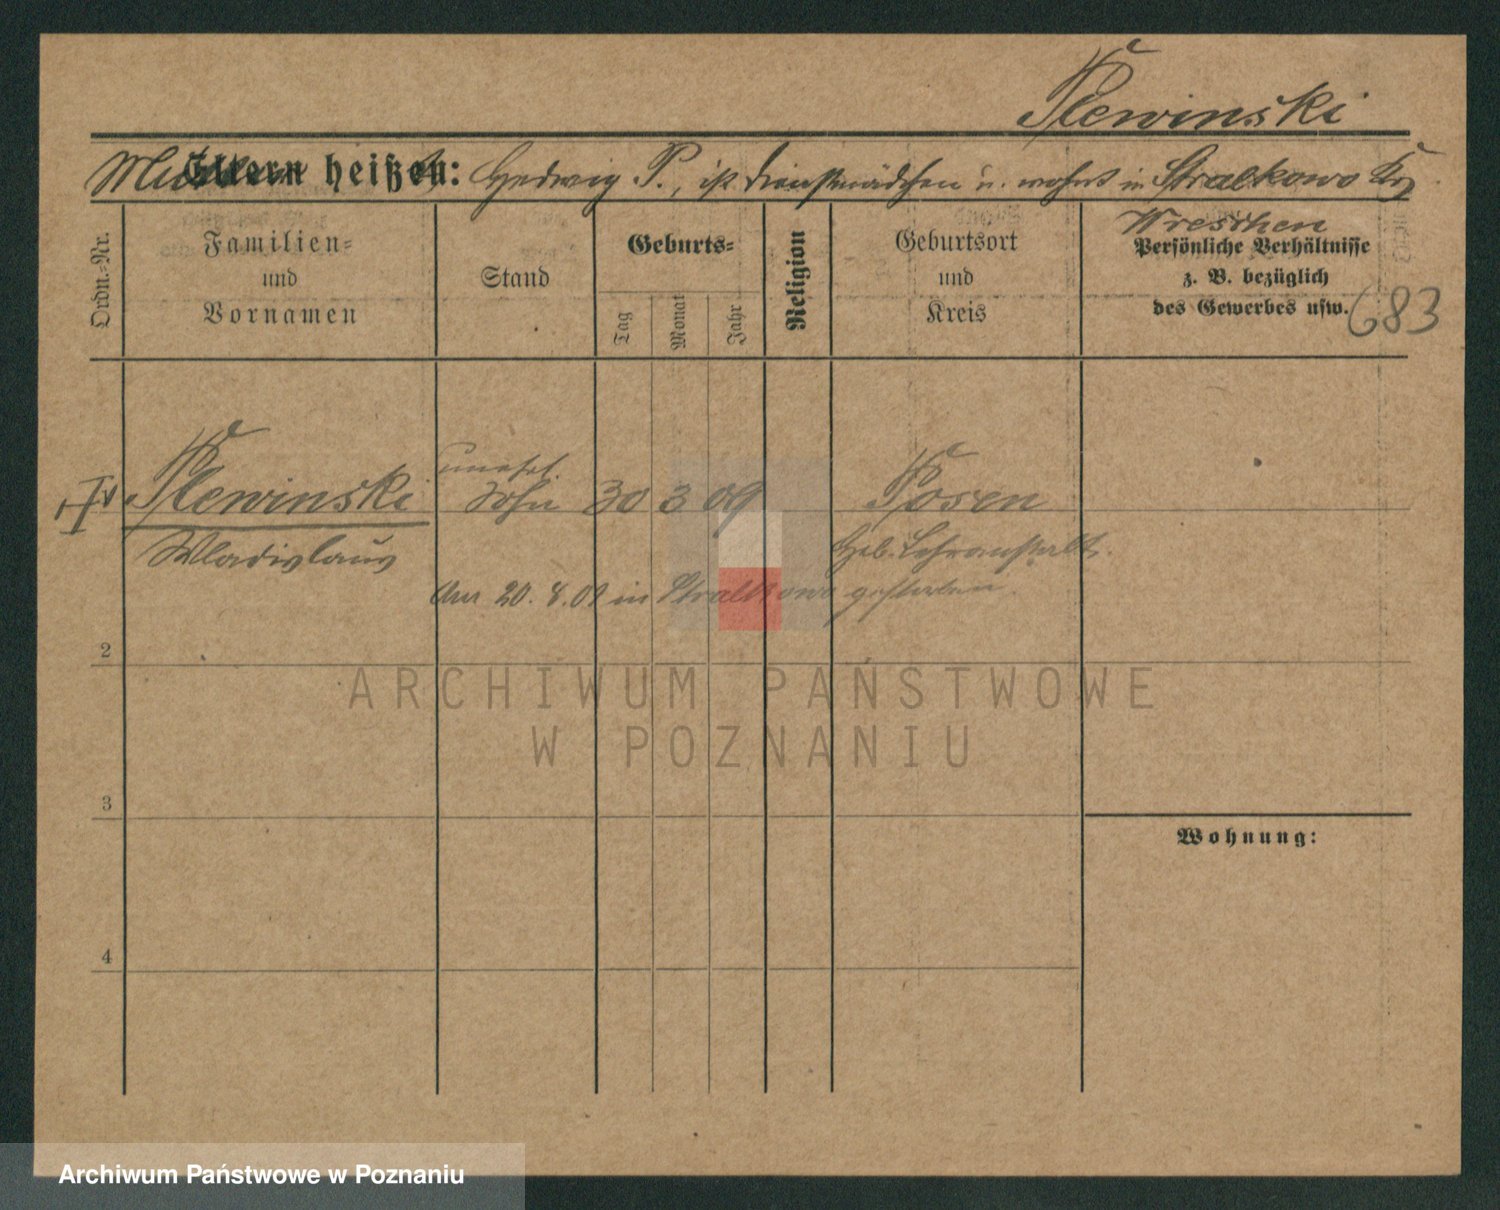 Plewinski
Mutter Eltern heißen: Hedwig P., ist Dienstmädchen u. wohnt in Stralkowo Krs
Wreschen
Ordn.-Nr.
Familien-
und
Vornamen
Stand
Geburts-
Tag
Monat
Jahr
Religion
Geburtsort
und
Kreis
Persönliche Verhältnisse
z. B. bezüglich
des Gewerbes usw.
683
Plewinski
unehel.
Sohn
30 3 09
Posen
Wladislaus
Heb. Lehranstalt.
Am 20. 8. 09 in Stralkowo gestorben.
2
ARCHIWUM PAŃSTWOWE
W POZNANIU
3
Wohnung:
4
Archiwum Państwowe w Poznaniu